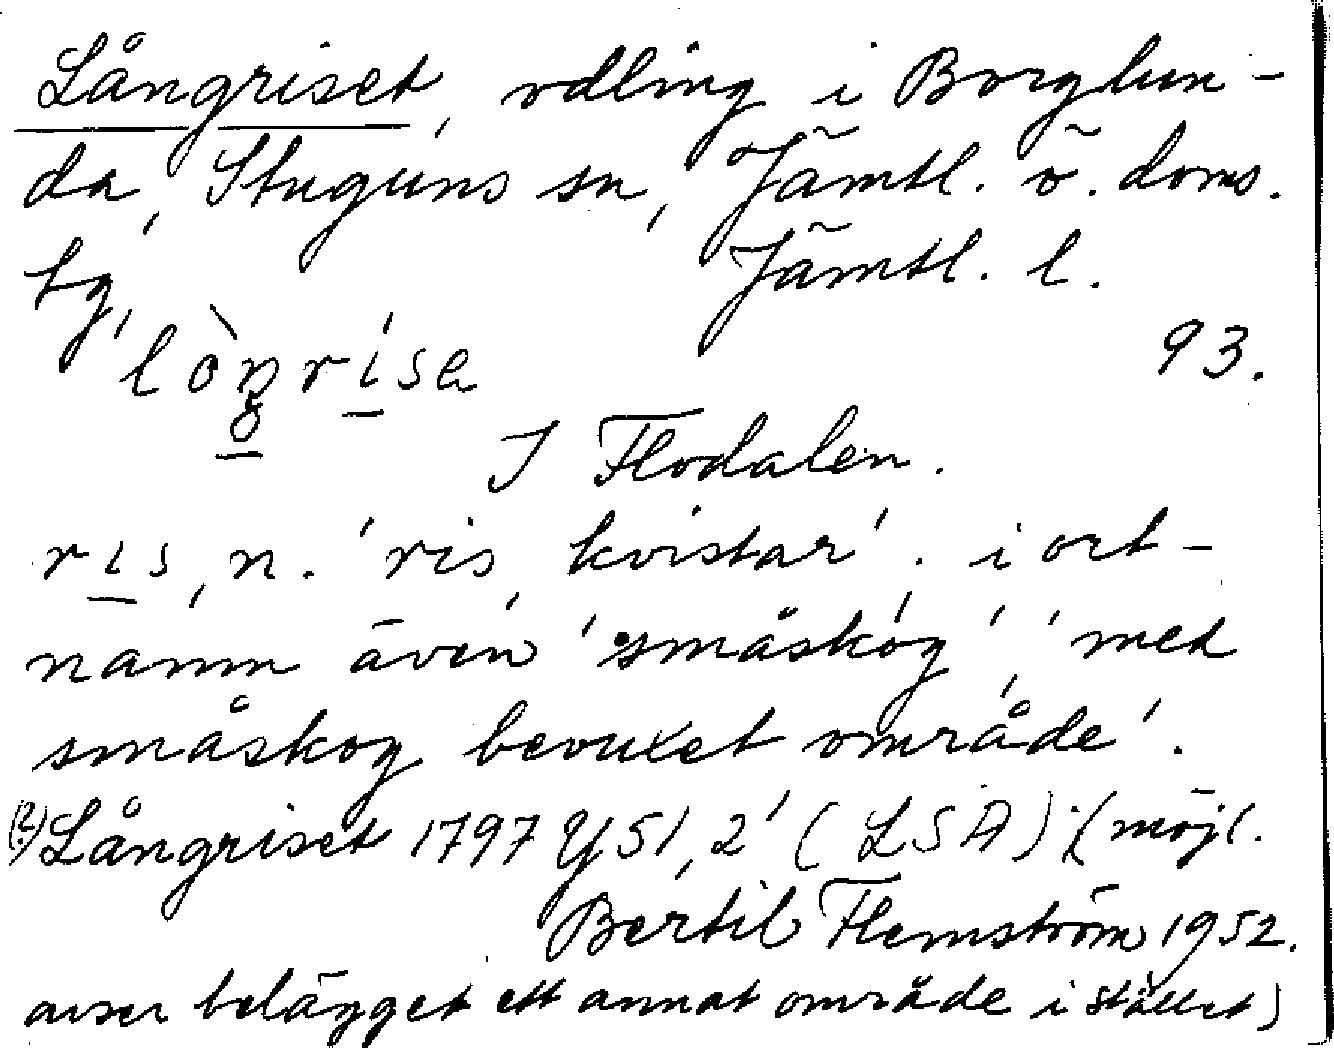 Långriset, odling i Borglun-
da, Stuguns sn, Jämtl. ö. doms.
tg, Jämtl. l.
lòŋrísa 93.
I Flodalen.
ris, n. 'ris, kvistar'. i ort-
namn även 'småskog', 'med
småskog bevuxet område'.
(?) Långriset 1797 Y51, 2' (LSA); (möjl.
Bertil Flemström 1952.
avser belägget ett annat område i stället)